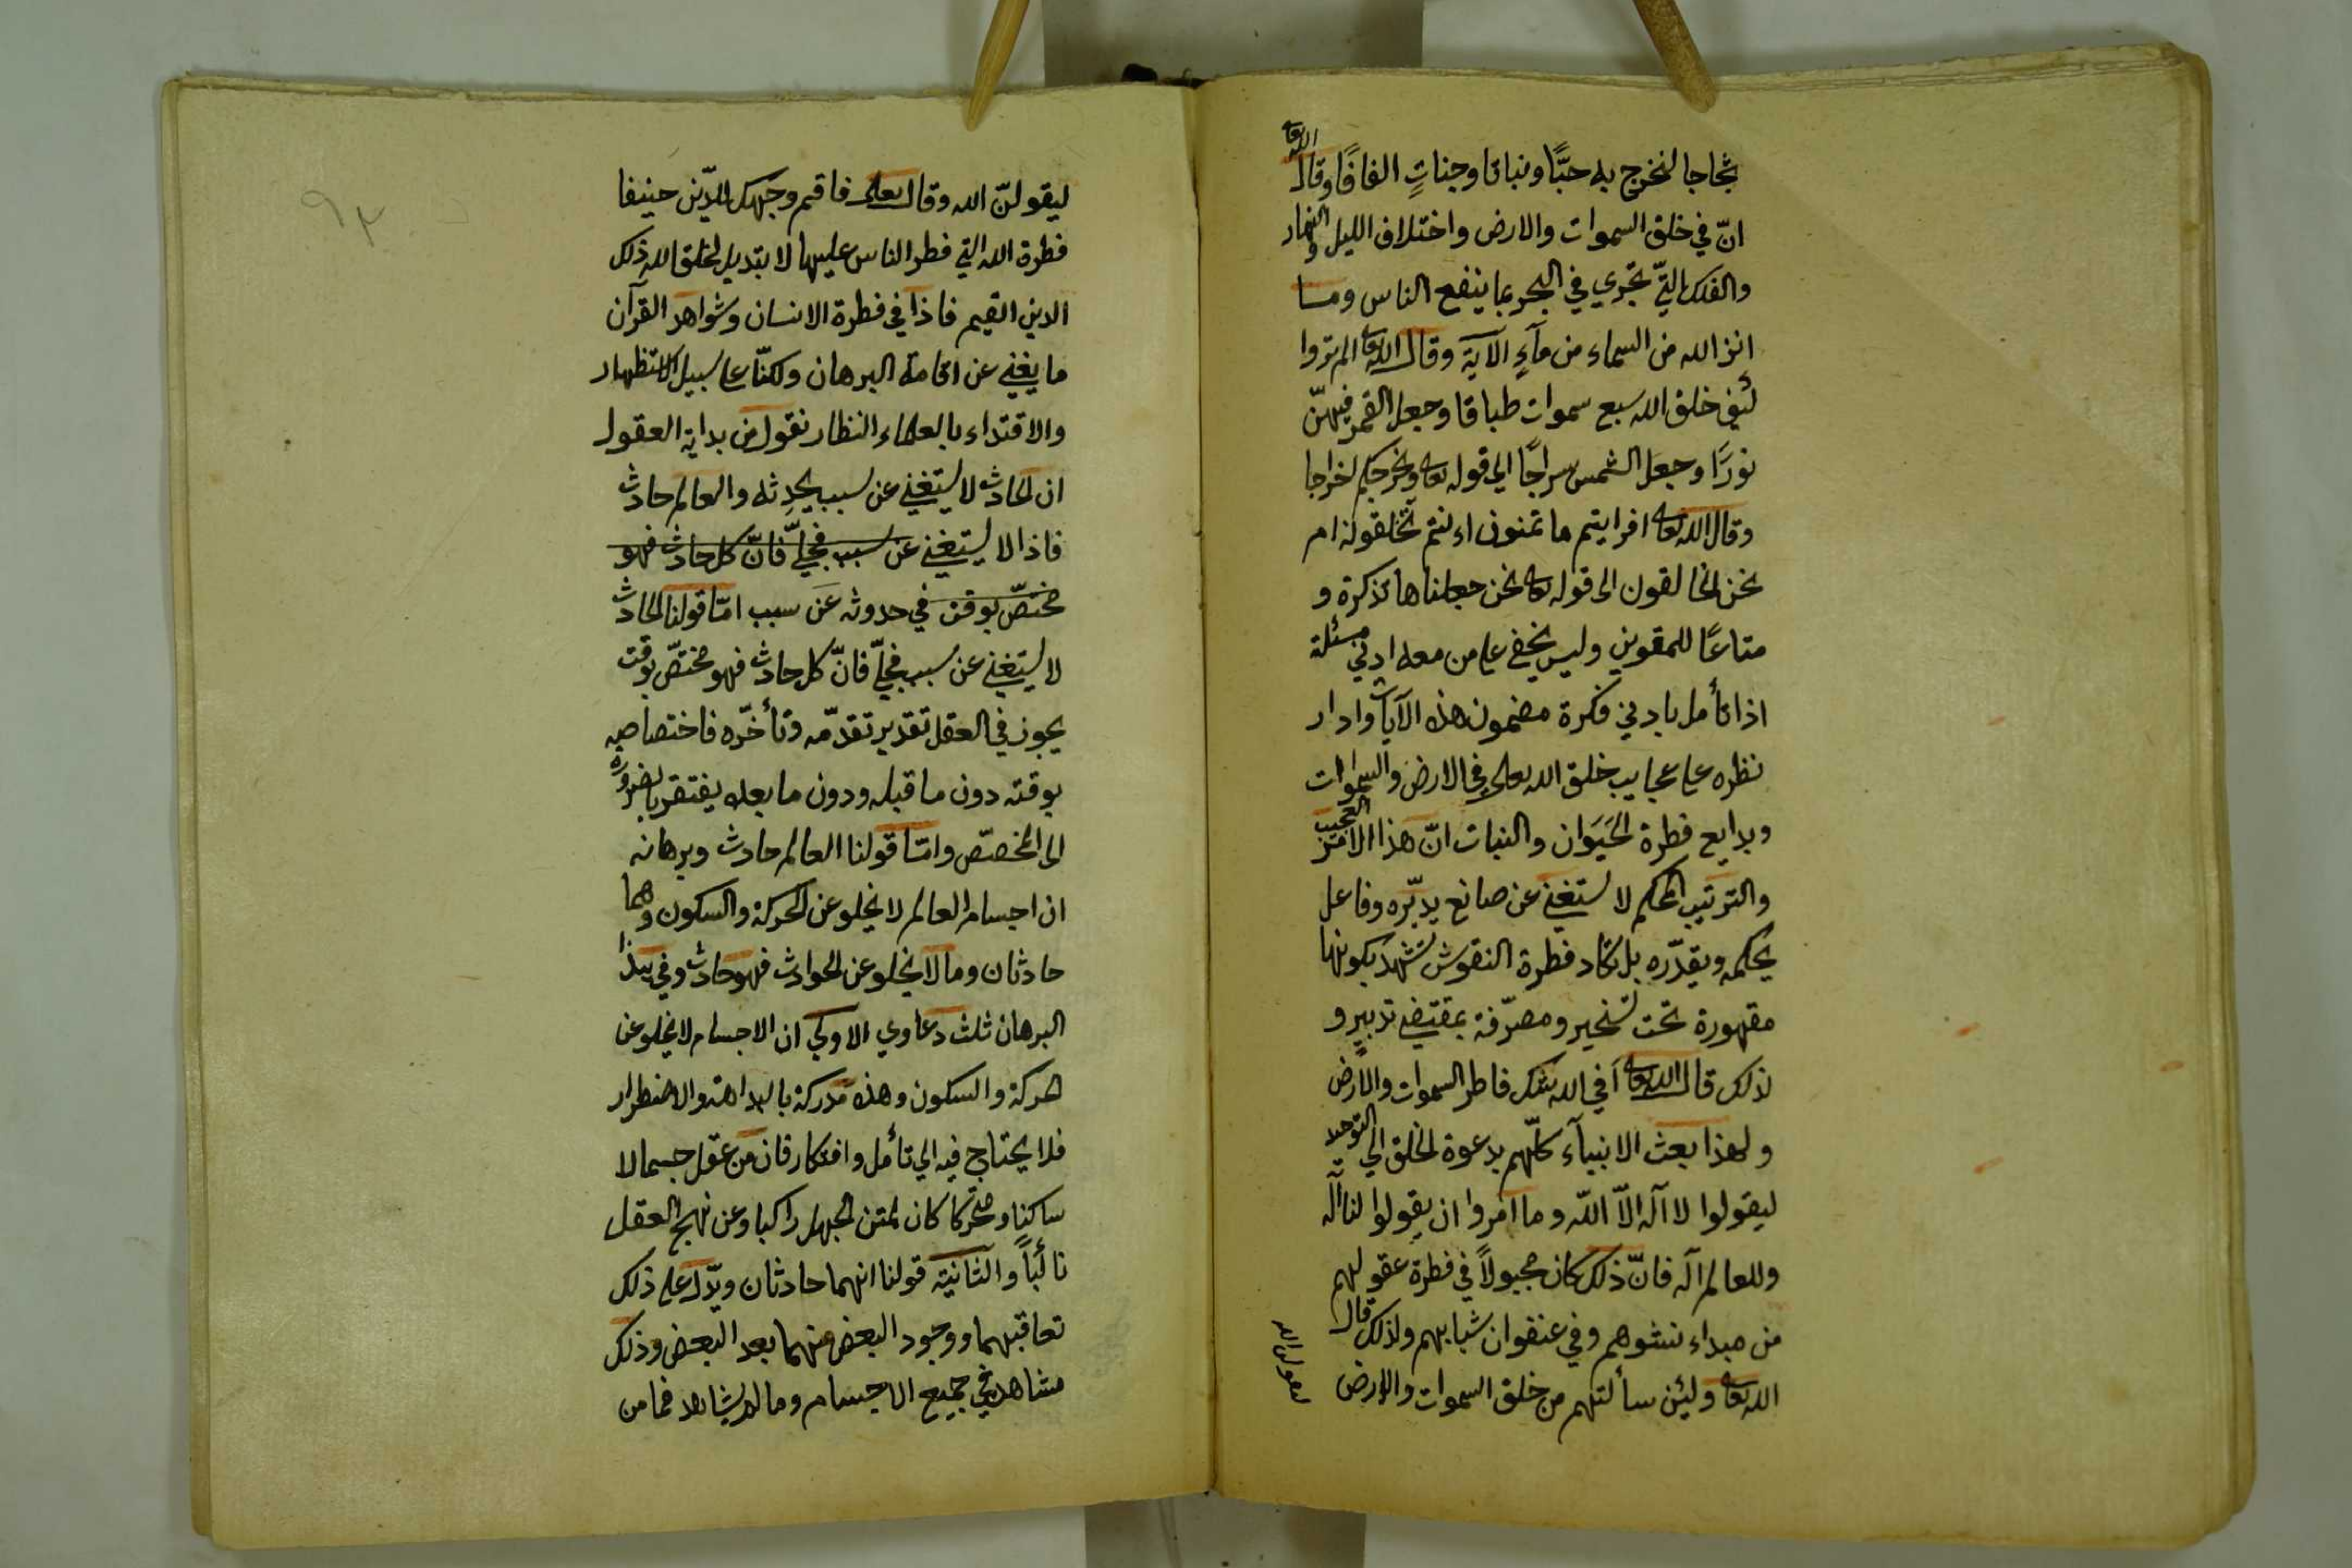 ثجاجا لنخرج به حبًّا ونباتا وجناتٍ الفافًا وقال الله تعا
انّ في خلق السموات والارض واختلاف الليل والنهار
والفلك التّي تجري في البحر بما ينفع الناس وما
انزل الله من السماء من مآءٍ الآية وقال الله تعا الم تروا
كيف خلق الله سبع سموات طباقا وجعل القمر فيهنّ
نورًا وجعل الشمس سراجًا الي قوله تعا ويخرجكم اخراجا
وقال الله تعا افرايتم ما تمنون اءنتم تخلقونه ام
نحن الخالقون الى قوله تعا نحن جعلناها تذكرة و
متاعًا للمقوين وليس يخفي علي من معه ادني مسئلة
اذا تأمل بادني فكرة مضمون هذه الآيات وادار
نظره علي عجايب خلق الله تعالي في الارض والسموات
وبدايع فطرة الحَيَوان والنبات انّ هذا الامر العجيب
والترتيب المحكم لا يستغني عن صانع يدبّره وفاعل
يحكمه ويقدّره بل تكاد فطرة النفوس تشهد بكونها
مقهورة تحت تسخير ومصرّفة بمقتضي تدبيرٍ و
لذلك قال الله تعا أفي الله شك فاطر السموات والارض
ولهذا بعث الانبيآء كلّهم بدعوة الخلق الي التوحيد
ليقولوا لا آله الاّ اللّه وما امروا ان يقولوا لنا آله
وللعالم آله فانّ ذلك كان مجبولاً في فطرة عقولهم
من مبداء نشوهم وفي عنفوان شبابهم ولذلك قال
الله تعا ولئن سألتهم من خلق السموات والارض
ليقولن الله
٩٣
ليقولنّ الله وقال تعالى فاقم وجهك للدّين حنيفا
فطرة الله التي فطر الناس عليها لا تبديل لخلق الله ذلك
الدين القيم فاذا في فطرة الانسان وشواهد القرآن
ما يغني عن اقامة البرهان ولكنّا علي سبيل الاستظهار
والاقتداء بالعلماء النظار نقول من بداية العقول
ان الحادث لا يستغني عن سبب يحدِثه والعالم حادث
فاذا لا يستغني عن سبب فجليّ فانّ كل حادث فهو
مختصّ بوقت في حدوثه عَن سبب امّا قولنا الحادث
لا يستغني عن سبب فجليّ فانّ كل حادث فهو مختصّ بوقت
يجوز في العقل تقدير تقدّمه وتأخّره فاختصاصه
بوقته دون ما قبله ودون ما بعده يفتقر بالضرورة
الى المخصّص وامّا قولنا العالم حادث وبرهانه
ان اجسام العالم لا يخلو عن الحركة والسكون وهما
حادثان وما لا يخلو عن الحوادث فهو حادث وفي هذا
البرهان ثلث دعاوي الاولي ان الاجسام لا يخلو عن
الحركة والسكون وهذه مدركة بالبداهة والاضطرار
فلا يحتاج فيه الي تأمل وافتكار فان من عقل جسما لا
ساكنا ومتحركا كان لمتن الجهل راكبا وعن نهج العقل
نائباً والثانية قولنا انهما حادثان ويدّل علي ذلك
تعاقبهما ووجود البعض منهما بعد البعض وذلك
مشاهد في جميع الاجسام وما لم يشاهد فما من